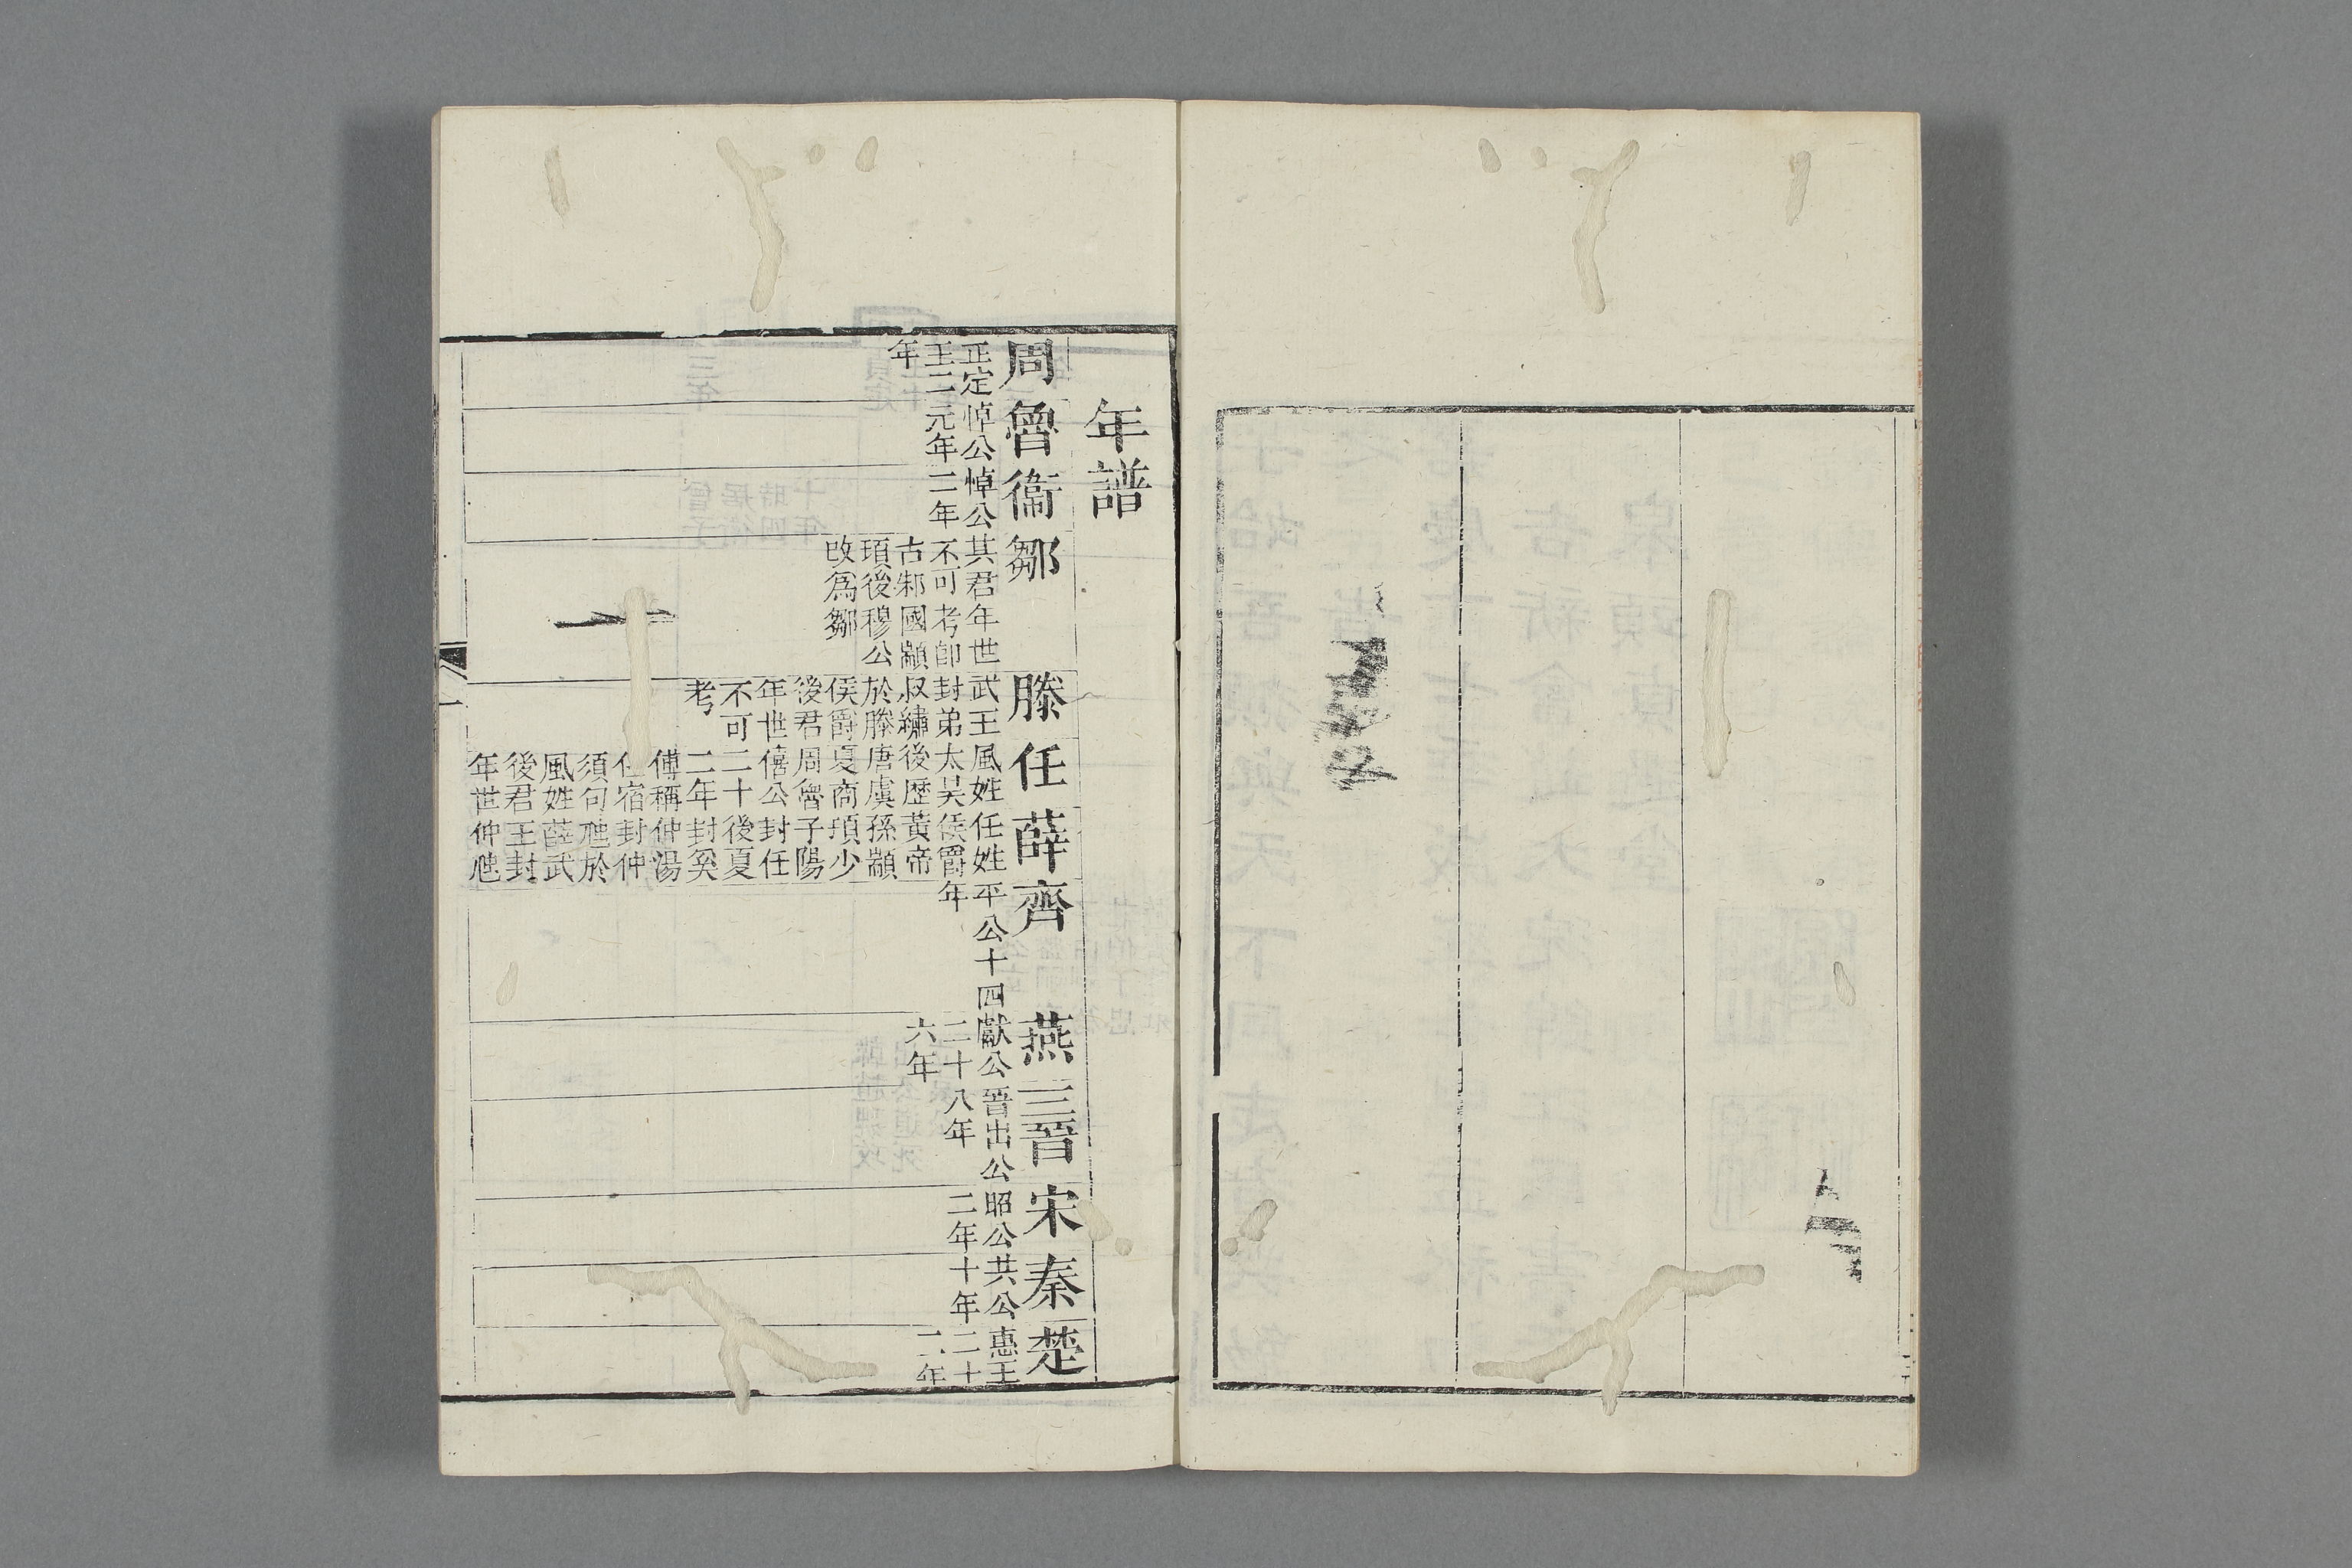 年譜
周
正定
王二
年
魯
悼公
元年
衞
悼公
二年
鄒
其君年世
不可考卽
古邾國顓
頊後穆公
改爲鄒
滕
武王
封弟
叔繡
於滕
侯爵
後君
年世
不可
考
任
風姓
太昊
後歷
唐虞
夏商
周魯
僖公
二十
二年
傅稱
任宿
須句
風姓
後君
年世
薛
任姓
侯爵
黃帝
孫顓
頊少
子陽
封任
後夏
封奚
仲湯
封仲
虺於
薛武
王封
仲虺
齊
平公十四
年
燕
獻公
二十
六年
三晉
晉出公
八年
宋
昭公
二年
秦
共公
十年
楚
惠王
二十
二年
一